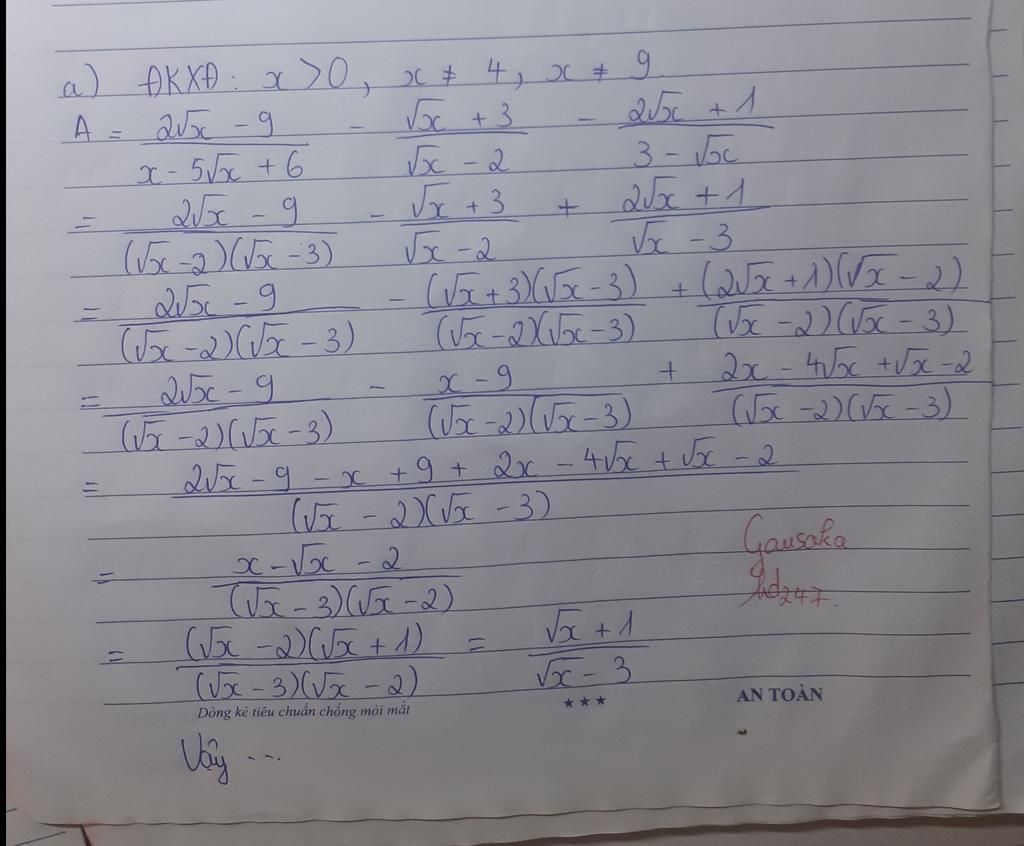 a) ĐKXĐ: x > 0, x ≠ 4, x ≠ 9
A = (2√x - 9)/(x - 5√x + 6) - (√x + 3)/(√x - 2) - (2√x + 1)/(3 - √x)
= (2√x - 9)/((√x - 2)(√x - 3)) - (√x + 3)/(√x - 2) + (2√x + 1)/(√x - 3)
= (2√x - 9)/((√x - 2)(√x - 3)) - ((√x + 3)(√x - 3))/((√x - 2)(√x - 3)) + ((2√x + 1)(√x - 2))/((√x - 2)(√x - 3))
= (2√x - 9)/((√x - 2)(√x - 3)) - (x - 9)/((√x - 2)(√x - 3)) + (2x - 4√x + √x - 2)/((√x - 2)(√x - 3))
= (2√x - 9 - x + 9 + 2x - 4√x + √x - 2)/((√x - 2)(√x - 3))
Gausaka
= (x - √x - 2)/((√x - 3)(√x - 2))
hd247.
= ((√x - 2)(√x + 1))/((√x - 3)(√x - 2)) = (√x + 1)/(√x - 3)
Dòng kẻ tiêu chuẩn chống mỏi mắt ★★★ AN TOÀN
Vậy ...